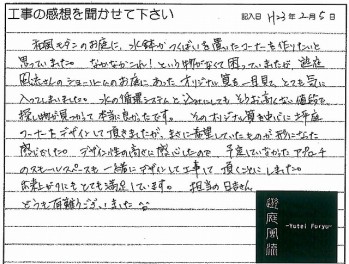 工事の感想を聞かせて下さい
記入日 H23年2月5日
和風モダンのお庭に、水鉢かつくばいを置いたコーナーを作りたいと
思っていました。なかなかこれ!という物がなくて困っていましたが、遊庭
風流さんのショールームのお庭にあったオリジナル
入ってしまいました。水の循環システムと込みにしてもそうお高くない値段で、
探し物が見つかって本当に良かったです。そのオリジナル
コーナーをデザインして頂きましたが、まさに希望していたものが形になった
感じでした。デザイン性の高さに感心したので、予定していなかったアプローチ
のスモールスペースも一緒にデザインして工事して頂くことにしました。
出来上がりにもとても満足しています。担当の
どうも有難うございました。
遊庭風流
-Yutei Furyu-